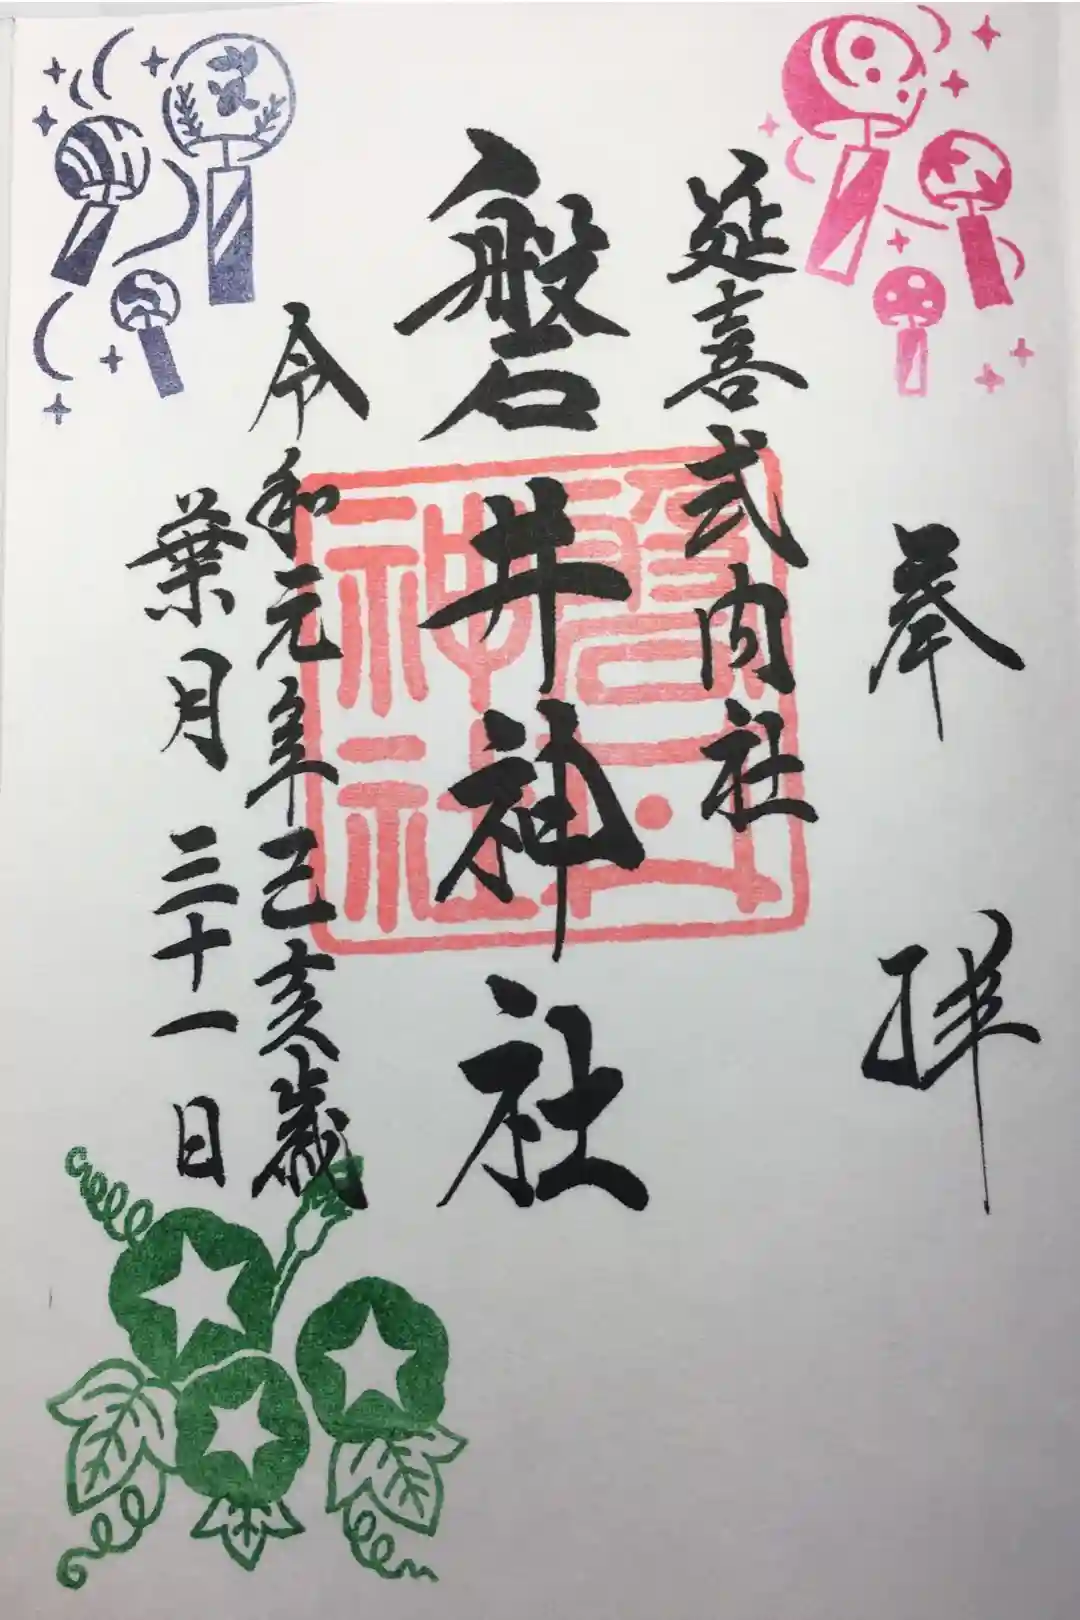 奉拝
延喜式内社
磐井神社
磐井神社
令和元年己亥歳
葉月三十一日